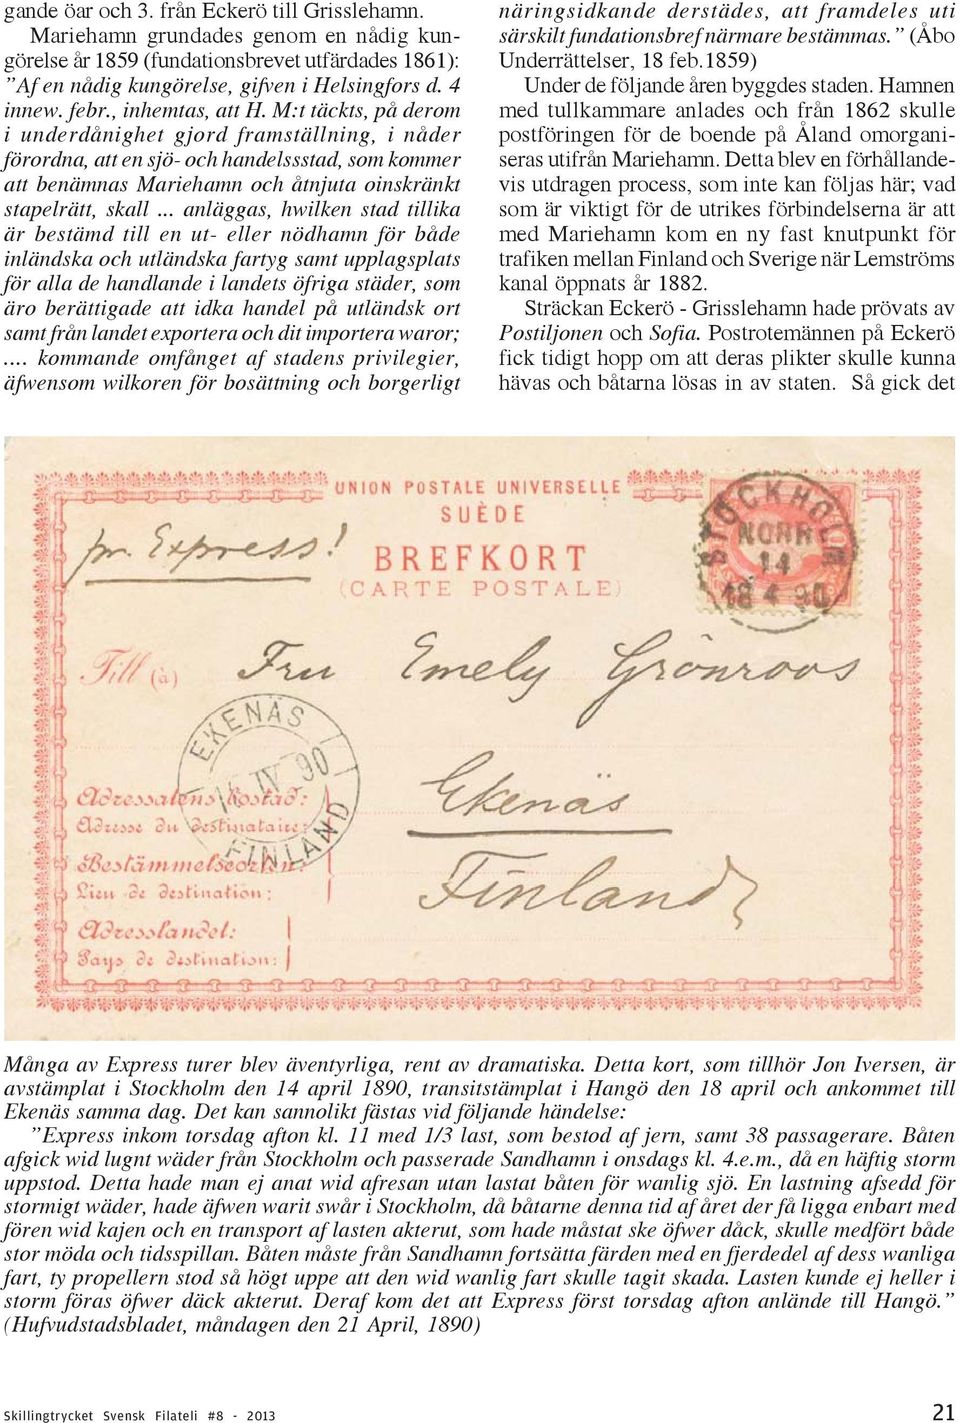 gande öar och 3. från Eckerö till Grisslehamn.
Mariehamn grundades genom en nådig kun-
görelse år 1859 (fundationsbrevet utfärdades 1861):
”Af en nådig kungörelse, gifven i Helsingfors d. 4
innew. febr., inhemtas, att H. M:t täckts, på derom
i underdånighet gjord framställning, i nåder
förordna, att en sjö- och handelssstad, som kommer
att benämnas Mariehamn och åtnjuta oinskränkt
stapelrätt, skall ... anläggas, hwilken stad tillika
är bestämd till en ut- eller nödhamn för både
inländska och utländska fartyg samt upplagsplats
för alla de handlande i landets öfriga städer, som
äro berättigade att idka handel på utländsk ort
samt från landet exportera och dit importera waror;
... kommande omfånget af stadens privilegier,
äfwensom wilkoren för bosättning och borgerligt
näringsidkande derstädes, att framdeles uti
särskilt fundationsbref närmare bestämmas. ” (Åbo
Underrättelser, 18 feb.1859)
Under de följande åren byggdes staden. Hamnen
med tullkammare anlades och från 1862 skulle
postföringen för de boende på Åland omorgani-
seras utifrån Mariehamn. Detta blev en förhållande-
vis utdragen process, som inte kan följas här; vad
som är viktigt för de utrikes förbindelserna är att
med Mariehamn kom en ny fast knutpunkt för
trafiken mellan Finland och Sverige när Lemströms
kanal öppnats år 1882.
Sträckan Eckerö - Grisslehamn hade prövats av
Postiljonen och Sofia. Postrotemännen på Eckerö
fick tidigt hopp om att deras plikter skulle kunna
hävas och båtarna lösas in av staten. Så gick det
UNION POSTALE UNIVERSELLE
SUÈDE
BREFKORT
(CARTE POSTALE)
pr. Express!
STOCKHOLM
NORR
14
18 4 90
Till (à)
Fru Emely Grönroos
EKENÄS
IV 90
FINLAND
Ekenäs
Finland
Adressatens bostad:
Adresse du destinataire:
Bestämmelseorten:
Lieu de destination:
Adresslandet:
Pays de destination:
Många av Express turer blev äventyrliga, rent av dramatiska. Detta kort, som tillhör Jon Iversen, är
avstämplat i Stockholm den 14 april 1890, transitstämplat i Hangö den 18 april och ankommet till
Ekenäs samma dag. Det kan sannolikt fästas vid följande händelse:
”Express inkom torsdag afton kl. 11 med 1/3 last, som bestod af jern, samt 38 passagerare. Båten
afgick wid lugnt wäder från Stockholm och passerade Sandhamn i onsdags kl. 4.e.m., då en häftig storm
uppstod. Detta hade man ej anat wid afresan utan lastat båten för wanlig sjö. En lastning afsedd för
stormigt wäder, hade äfwen warit swår i Stockholm, då båtarne denna tid af året der få ligga enbart med
fören wid kajen och en transport af lasten akterut, som hade måstat ske öfwer dåck, skulle medfört både
stor möda och tidsspillan. Båten måste från Sandhamn fortsätta färden med en fjerdedel af dess wanliga
fart, ty propellern stod så högt uppe att den wid wanlig fart skulle tagit skada. Lasten kunde ej heller i
storm föras öfwer däck akterut. Deraf kom det att Express först torsdag afton anlände till Hangö.”
(Hufvudstadsbladet, måndagen den 21 April, 1890)
Skillingtrycket Svensk Filateli #8 - 2013
21